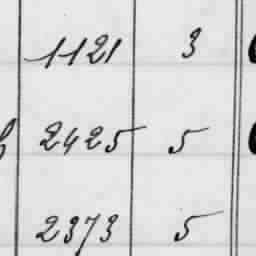 1121 3
2425 5
2373 5